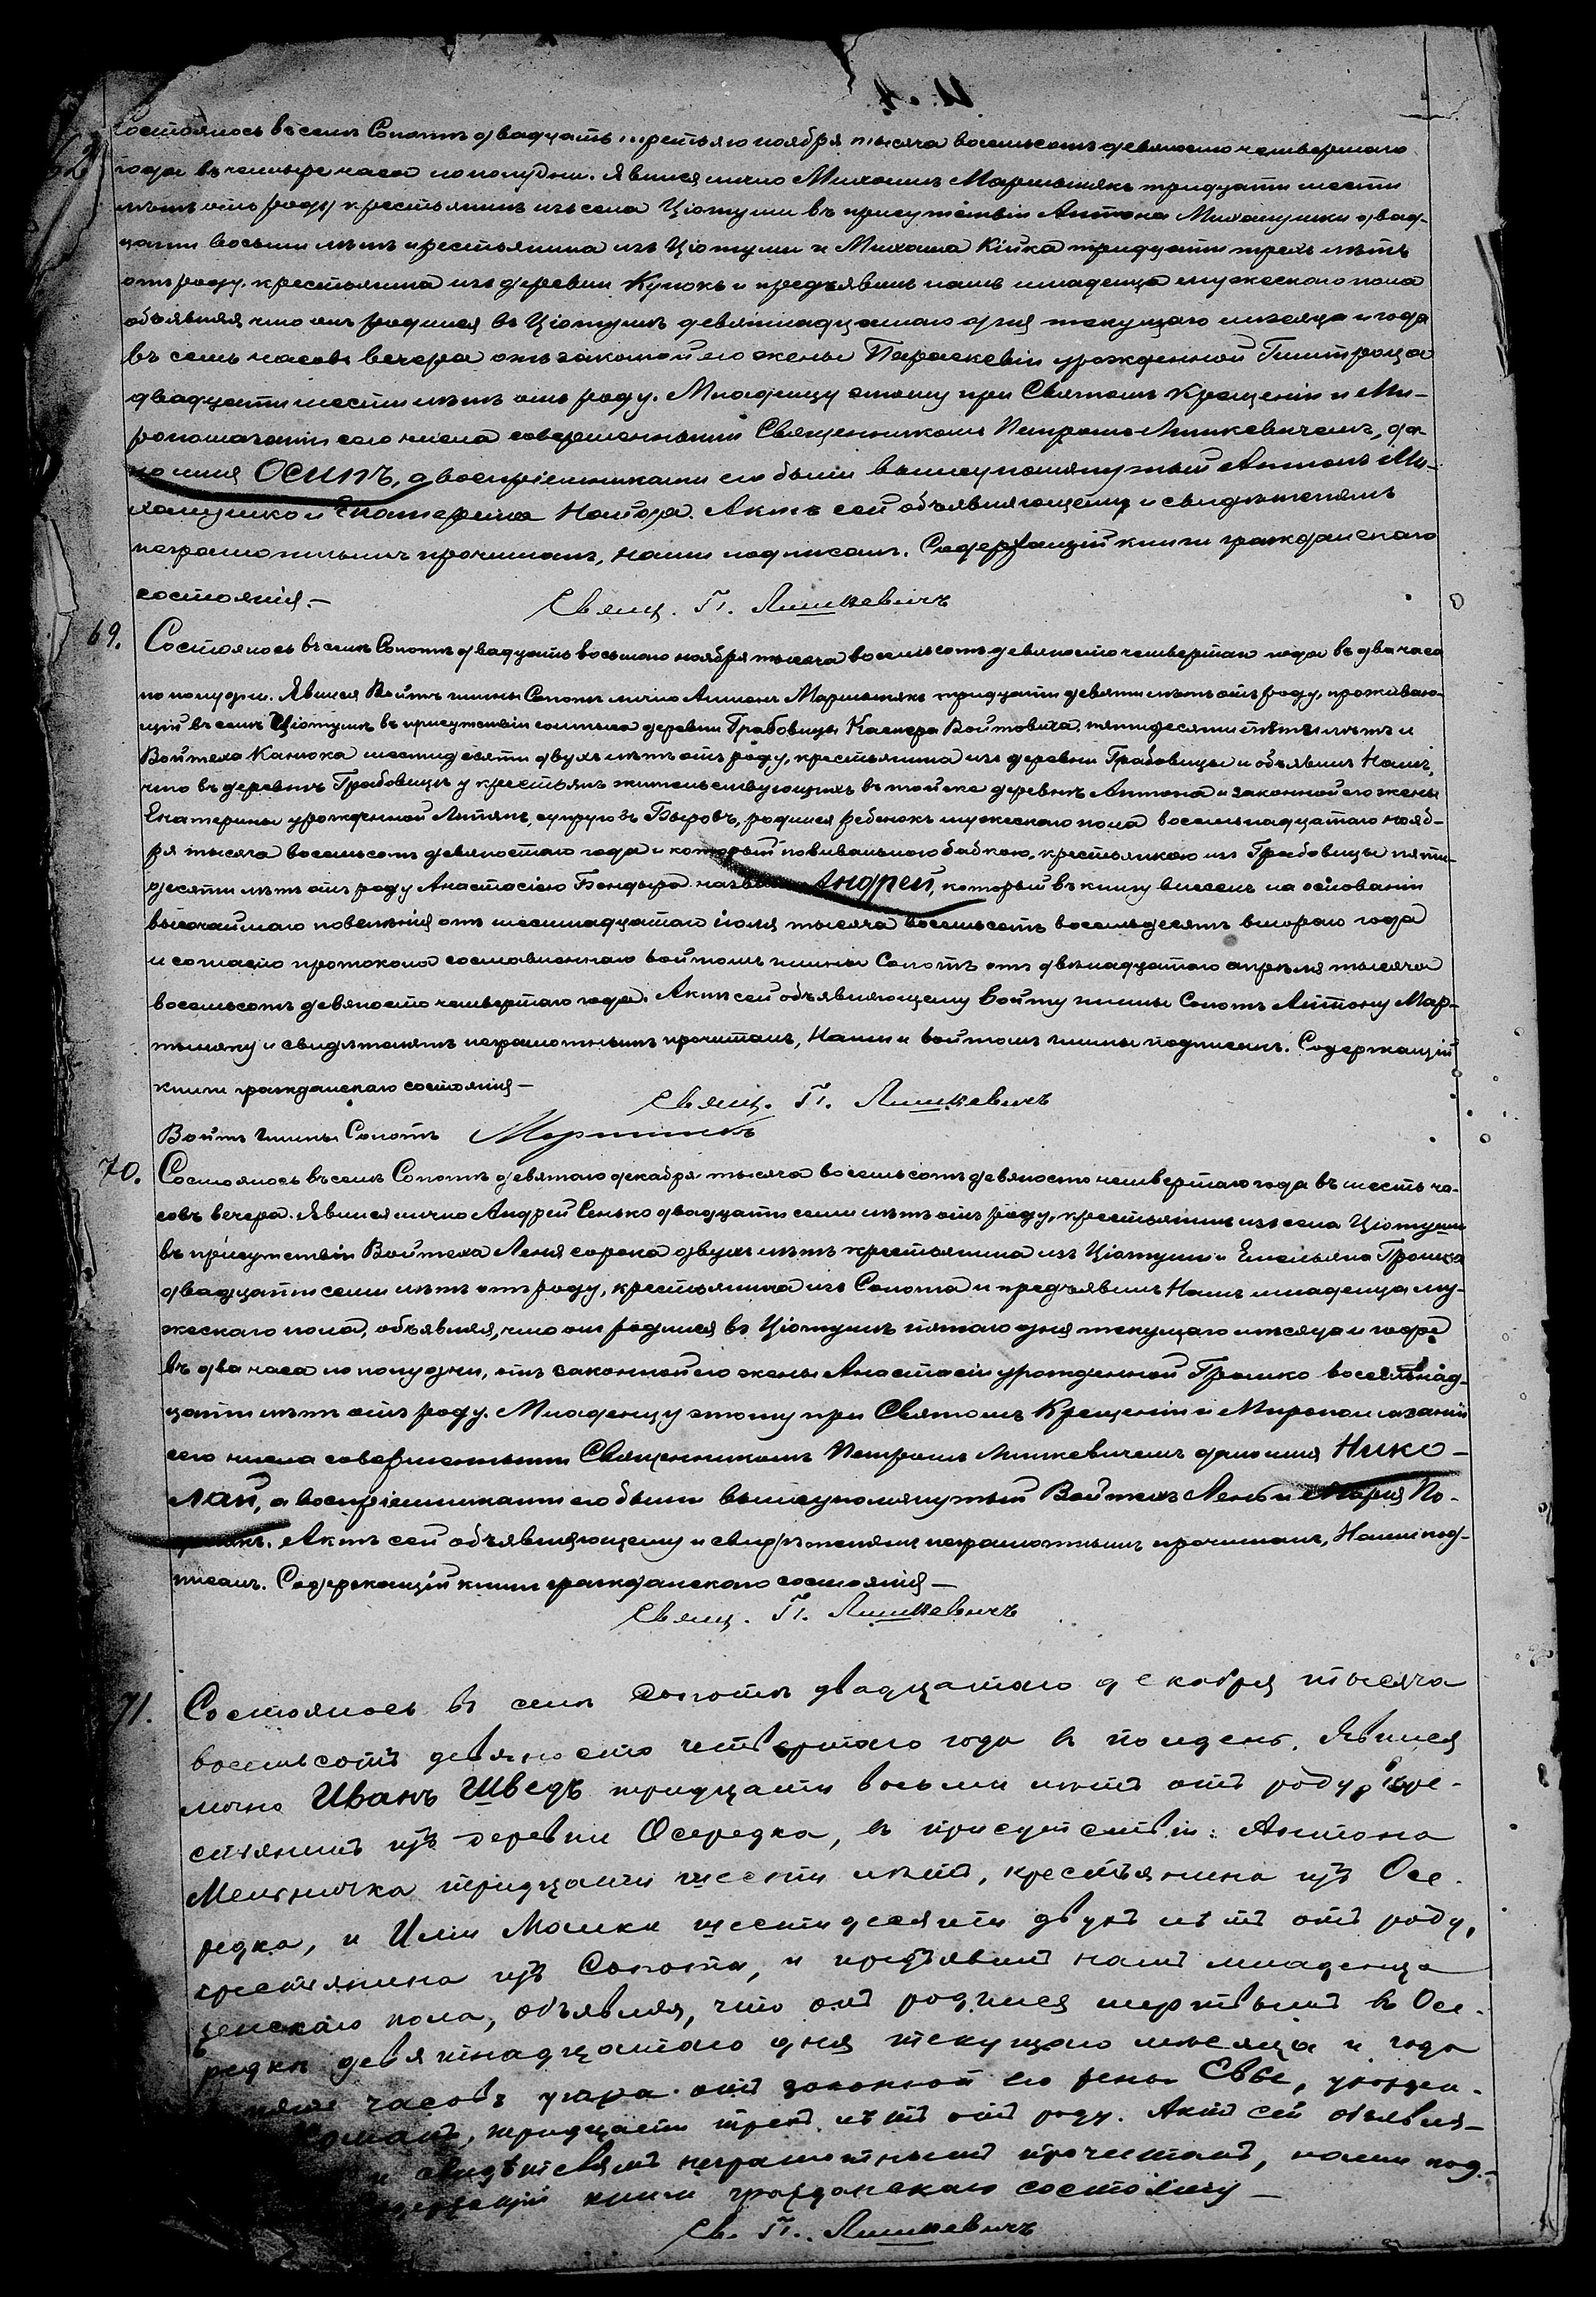 Состоялось въ селѣ Сопотѣ двадцать третьяго ноября тысяча восемьсотъ девяносто четвертаго
года въ четыре часа по полудни. Явился лично Михаилъ Мартынякъ тридцати шести
лѣтъ отъ роду крестьянинъ изъ села Ціотуши въ присутствіи Антона Михалушки двад-
цати восьми лѣтъ крестьянина изъ Ціотуши и Михаила Кійка тридцати трехъ лѣтъ
отъ роду, крестьянина изъ деревни и предъявилъ намъ младенца мужескаго пола
объявляя что онъ родился въ Ціотушѣ девятнадцатаго дня текущаго мѣсяца и года
въ семь часовъ вечера отъ законной его жены Параскевіи урожденной
двадцати шести лѣтъ отъ роду. Младенцу этому при Святомъ Крещеніи и Ми-
ропомазаніи сего числа совершенными Священникомъ Петромъ Линкевичемъ, да-
но имя Осипъ, а воспріемниками его были вышеупомянутый Антонъ Ми-
халушко и Екатерина Найда. Актъ сей объявляющему и свидѣтелямъ
неграмотнымъ прочитанъ, Нами подписанъ. Содержащій книги гражданскаго
состоянія.—
Свящ. П. Линкевичъ
69.
Состоялось въ селѣ Сопотѣ двадцать восьмаго ноября тысяча восемьсотъ девяносто четвертаго года въ два часа
по полудни. Явился Войтъ гмины Сопотъ лично Антонъ Мартынякъ тридцати девяти лѣтъ отъ роду, проживаю-
щій въ селѣ Ціотушѣ въ присутствіи солтыса деревни Грабовицы Каспера Войтовича, пятидесяти пяти лѣтъ и
Войтеха Канюка шестидесяти двухъ лѣтъ отъ роду, крестьянина изъ деревни Грабовицы и объявилъ Намъ,
что въ деревнѣ Грабовицѣ у крестьянъ жительствующихъ въ той же деревнѣ Антона и законной его жены
Екатерины урожденной супруговъ родился ребенокъ мужескаго пола восемьнадцатаго нояб-
ря тысяча восемьсотъ девяностаго года и который повивальною бабкою, крестьянкою изъ Грабовицы пяти-
десяти лѣтъ отъ роду Анастасіею Бондыра названъ Андрей, который въ книгу внесенъ на основаніи
высочайшаго повелѣнія отъ шестнадцатаго іюля тысяча восемьсотъ восемьдесятъ втораго года
и согласно протокола составленнаго войтомъ гмины Сопотъ отъ двѣнадцатаго апрѣля тысяча
восемьсотъ девяносто четвертаго года. Актъ сей объявляющему войту гмины Сопотъ Антону Мар-
тыняку и свидѣтелямъ неграмотнымъ прочитанъ, Нами и войтомъ гмины подписанъ. Содержащій
книги гражданскаго состоянія—
Свящ. П. Линкевичъ
Войтъ гмины Сопотъ Мартынякъ
70.
Состоялось въ селѣ Сопотѣ девятаго декабря тысяча восемьсотъ девяносто четвертаго года въ шесть ча-
совъ вечера. Явился лично Андрей Сенько двадцати семи лѣтъ отъ роду, крестьянинъ изъ села Ціотуши
въ присутствіи Войтеха Леня сорока двухъ лѣтъ крестьянина изъ Ціотуши и Емельяна Громка
двадцати семи лѣтъ отъ роду, крестьянина изъ Сопота и предъявилъ Намъ младенца му-
жескаго пола, объявляя, что онъ родился въ Ціотушѣ пятаго дня текущаго мѣсяца и года
въ два часа по полудни, отъ законной его жены Анастасіи урожденной Громко восемьнад-
цати лѣтъ отъ роду. Младенцу этому при Святомъ Крещеніи и Миропомазаніи
сего числа совершенными Священникомъ Петромъ Линкевичемъ дано имя Нико-
лай, а воспріемниками его были вышеупомянутый Войтехъ Лень и Марія По-
Актъ сей объявляющему и свидѣтелямъ неграмотнымъ прочитанъ, Нами под-
писанъ. Содержащій книги гражданскаго состоянія—
Свящ. П. Линкевичъ
71.
Состоялось въ селѣ Сопотѣ двадцатаго декабря тысяча
восемьсотъ девяносто четвертаго года въ полдень. Явился
лично Иванъ Шведъ тридцати восьми лѣтъ отъ роду, кре-
стьянинъ изъ деревни Осередка, въ присутствіи: Антона
Мельничка тридцати шести лѣтъ, крестьянина изъ Осе-
редка, и Иліи Малки шестидесяти двухъ лѣтъ отъ роду,
крестьянина изъ Сопота, и предъявилъ намъ младенца
женскаго пола, объявляя, что онъ родился мертвымъ въ Осе-
редкѣ девятнадцатаго дня текущаго мѣсяца и года
часовъ утра отъ законной его жены Еввы, урожден-
тридцати трехъ лѣтъ отъ роду. Актъ сей объявля-
и свидѣтелямъ неграмотнымъ прочитанъ, нами под-
Содержащій книги гражданскаго состоянія—
Св. П. Линкевичъ